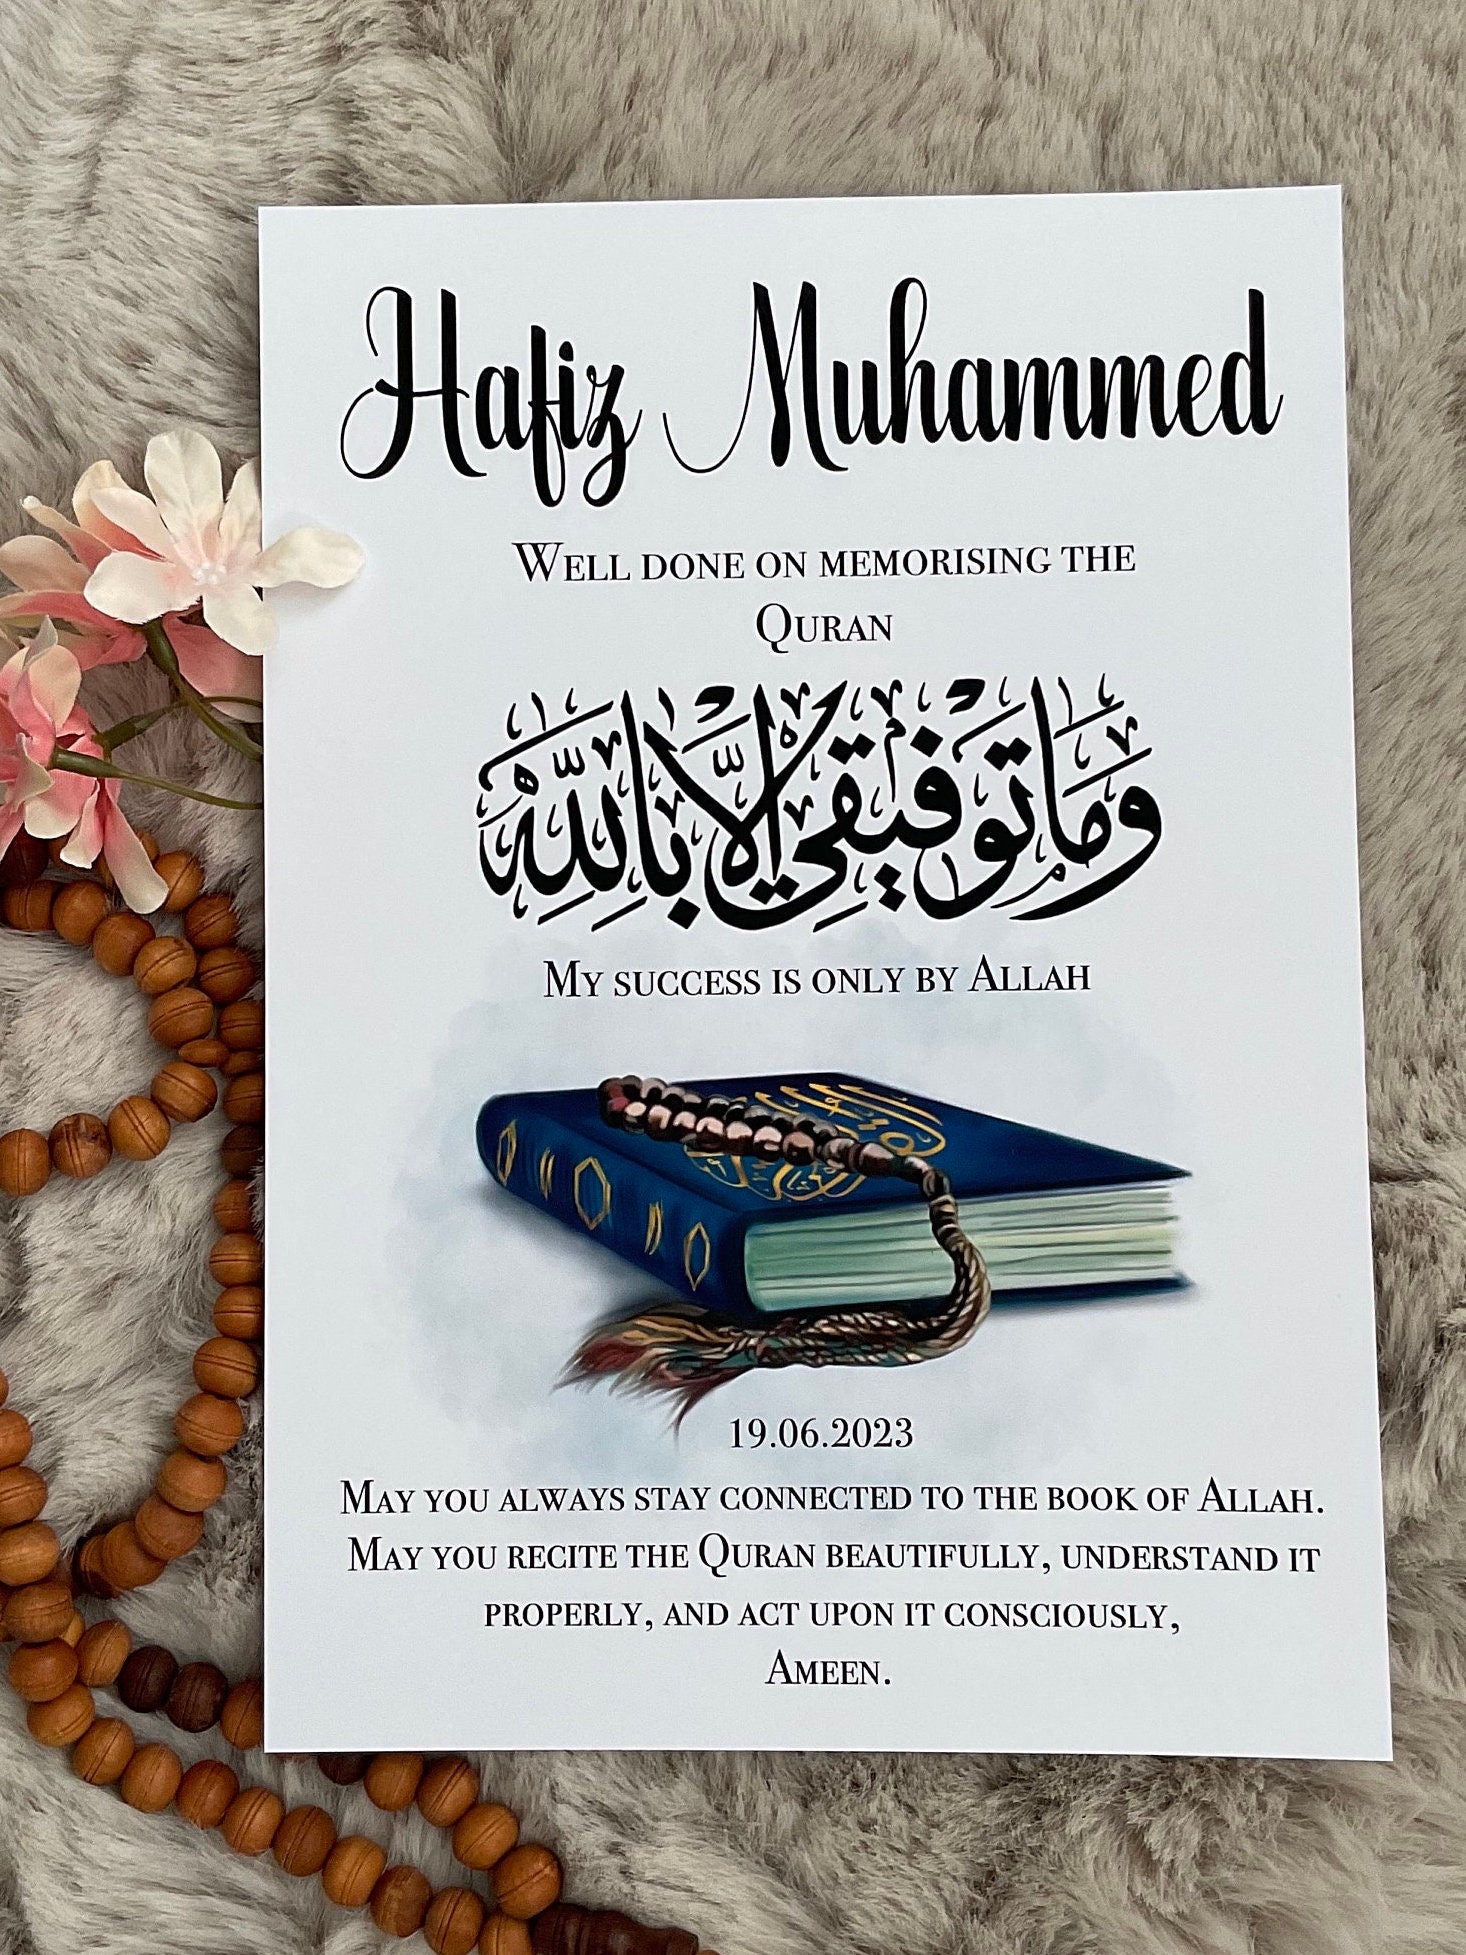 Hafiz Muhammed
Well done on memorising the
Quran
وَمَا تَوْفِيقِي إِلَّا بِاللَّهِ
My success is only by Allah
19.06.2023
May you always stay connected to the book of Allah.
May you recite the Quran beautifully, understand it
properly, and act upon it consciously,
Ameen.